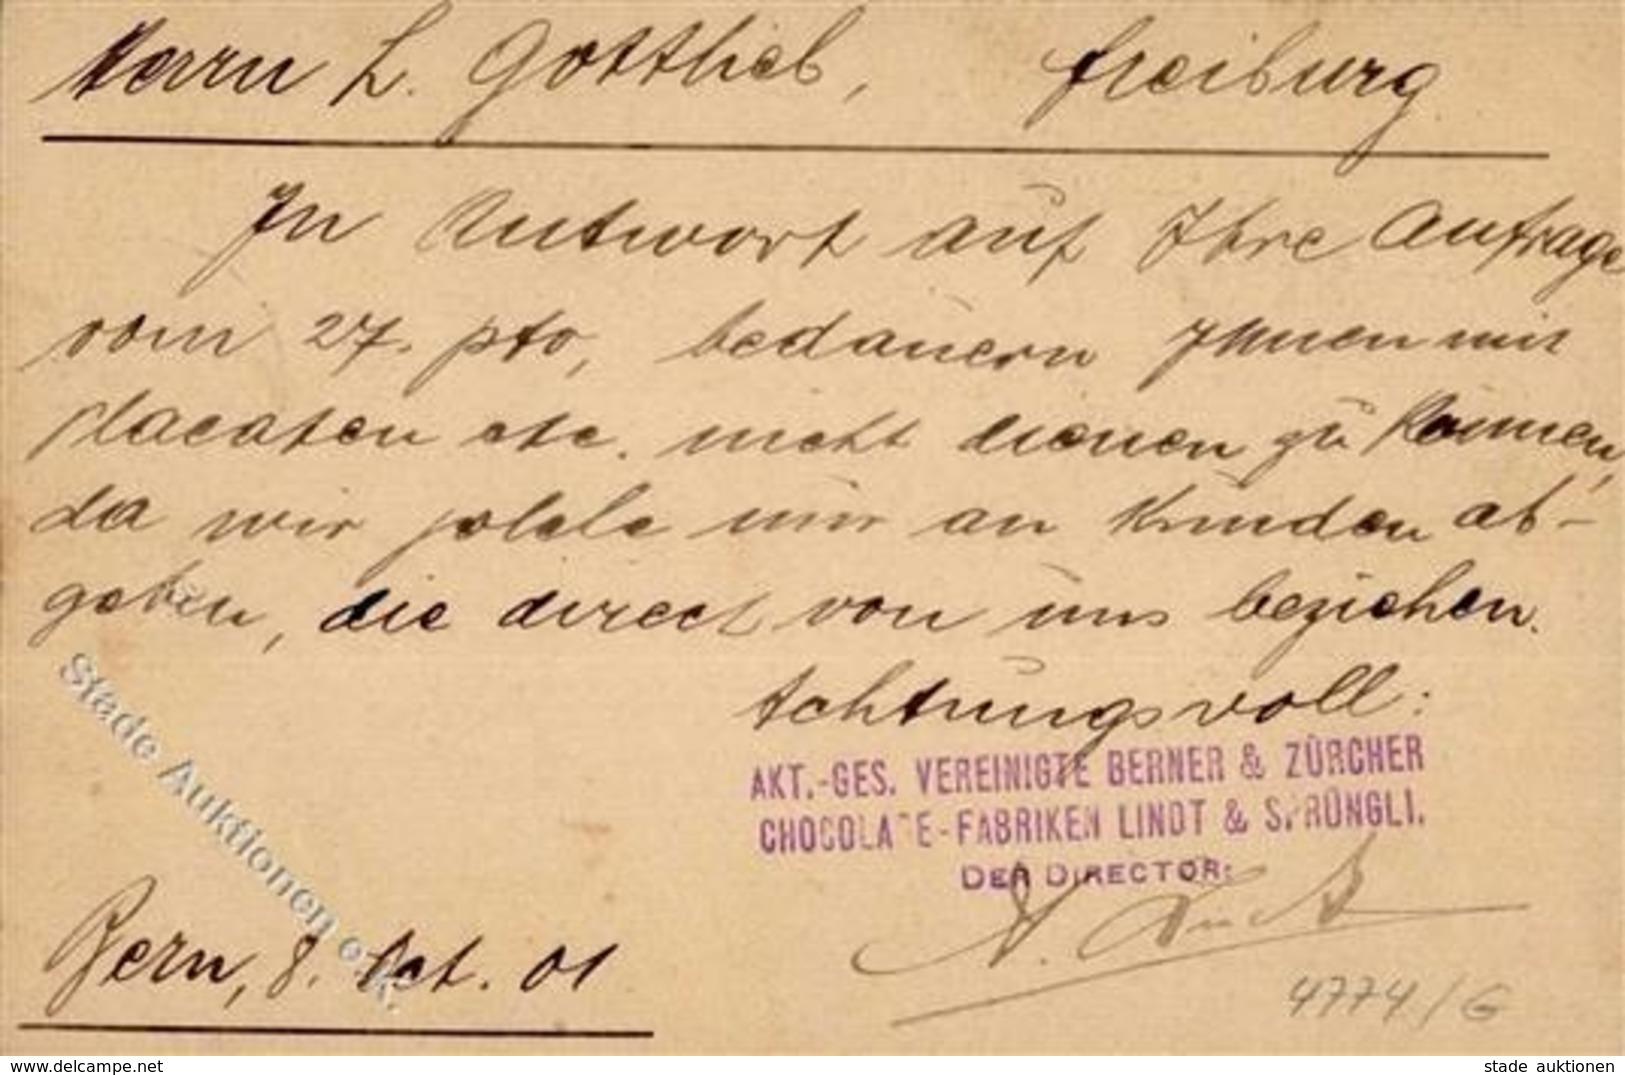 Herrn L. Gottlieb, Freiburg
In Antwort auf Ihre Anfrage
vom 27. pto, bedauern Ihnen mit
Placaten etc. nicht dienen zu können,
da wir solche nur an Kunden ab-
geben, die direct von uns beziehen.
Achtungsvoll:
AKT.-GES. VEREINIGTE BERNER & ZÜRCHER
CHOCOLADE-FABRIKEN LINDT & SPRÜNGLI.
DER DIRECTOR:
Bern, 8. Oct. 01
4774/G
Stade Auktionen
www.delcampe.net
stade auktionen